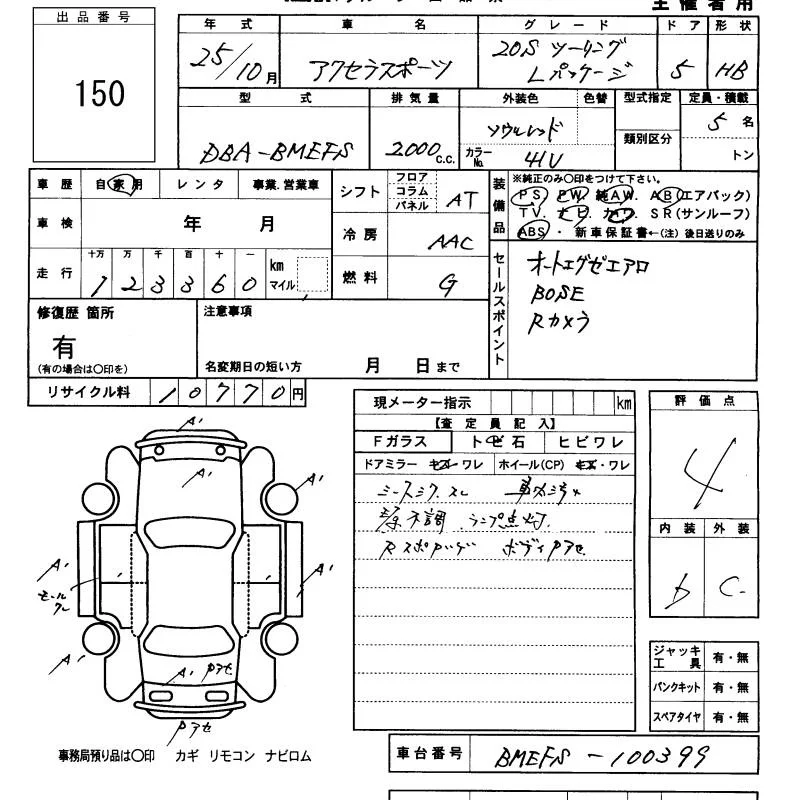 主催者用
出品番号
150
年式 車名 グレード ドア 形状
25/10月 アクセラスポーツ 20S ツーリング Lパッケージ 5 HB
型式 排気量 外装色 色替 型式指定 定員・積載
DBA-BMEFS 2000c.c. ソウルレッド 類別区分 5名
カラーNo. 41V トン
車歴 自家用 レンタ 事業.営業車
車検 年 月
走行 十万 万 千 百 十 一 km マイル
123360
シフト フロア コラム パネル AT
冷房 AAC
燃料 G
装備品 ※純正のみ○印をつけて下さい。
PS. PW. 純AW. AB(エアバック)
TV. ナビ. カワ. SR(サンルーフ)
ABS・新車保証書←(注)後日送りのみ
セールスポイント
オートエグゼエアロ
BOSE
Rカメラ
修復歴 箇所
有
(有の場合は○印を)
注意事項
名変期日の短い方 月 日まで
リサイクル料 18770円
現メーター指示 km
【査定員記入】
Fガラス トビ石 ヒビワレ
ドアミラー キズ・ワレ ホイール(CP) キズ・ワレ
不調 ランプ点灯
評価点
4
内装 外装
b C
ジャッキ工具 有・無
パンクキット 有・無
スペアタイヤ 有・無
A' A' A' A' A' A' A'
モール
事務局預り品は○印 カギ リモコン ナビロム
車台番号 BMEFS-100399